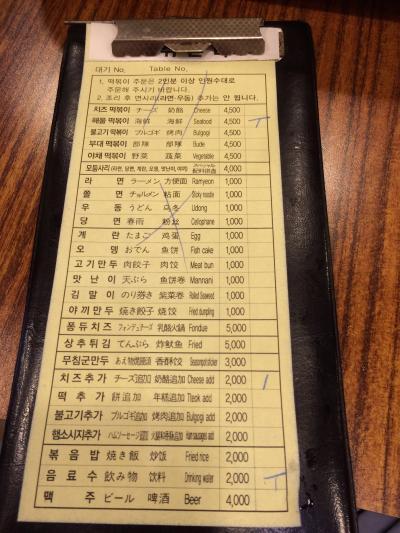 대기 No.    Table No.
1. 떡볶이 주문은 2인분 이상 인원수대로
주문해 주시기 바랍니다.
2. 조리 후 면사리(라면·우동) 추가는 안 됩니다.
치즈 떡볶이 チーズ 奶酪 Cheese 4,500
해물 떡볶이 海鮮 海鲜 Seafood 4,500
불고기 떡볶이 プルコギ 烤肉 Bulgogi 4,500
부대 떡볶이 部隊 部隊 Bude 4,500
야채 떡볶이 野菜 蔬菜 Vegetable 4,500
모듬사리 4,000
라 면 ラーメン 方便面 Ramyeon 1,000
쫄 면 チョルメン 粘面 Sticky noodle 1,000
우 동 うどん 乌冬 Udong 1,000
당 면 春雨 粉丝 Cellophane 1,000
계 란 たまご 鸡蛋 Egg 1,000
오 뎅 おでん 鱼饼 Fish cake 1,000
고기만두 肉餃子 肉饺 Meat bun 1,000
맛 난 이 天ぷら 鱼饼卷 Mannani 1,000
김 말 이 のり巻き 紫菜卷 Rolled Seaweed 1,000
야끼만두 焼き餃子 烧饺 Fried dumpling 1,000
퐁듀치즈 フォンデュチーズ 乳酪火锅 Fondue 5,000
상추튀김 てんぷら 炸鱿鱼 Fried 5,000
무침군만두 3,000
치즈추가 チーズ追加 奶酪追加 Cheese add 2,000
떡 추 가 餅追加 年糕追加 Tteok add 2,000
불고기추가 プルコギ追加 烤肉追加 Bulgogi add 2,000
햄소시지추가 Ham sausages add 2,000
볶 음 밥 焼き飯 炒饭 Fried rice 2,000
음 료 수 飲み物 饮料 Drinking water 2,000
맥 주 ビール 啤酒 Beer 4,000